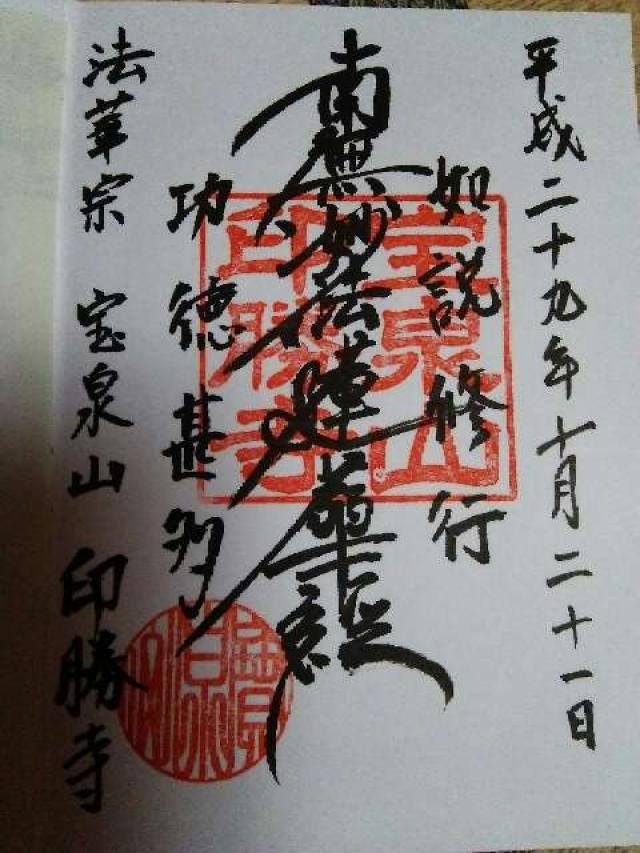 平成二十九年十月二十一日
如説修行
南無妙法蓮華経
功徳甚多
法華宗 宝泉山 印勝寺
宝泉山
印勝寺